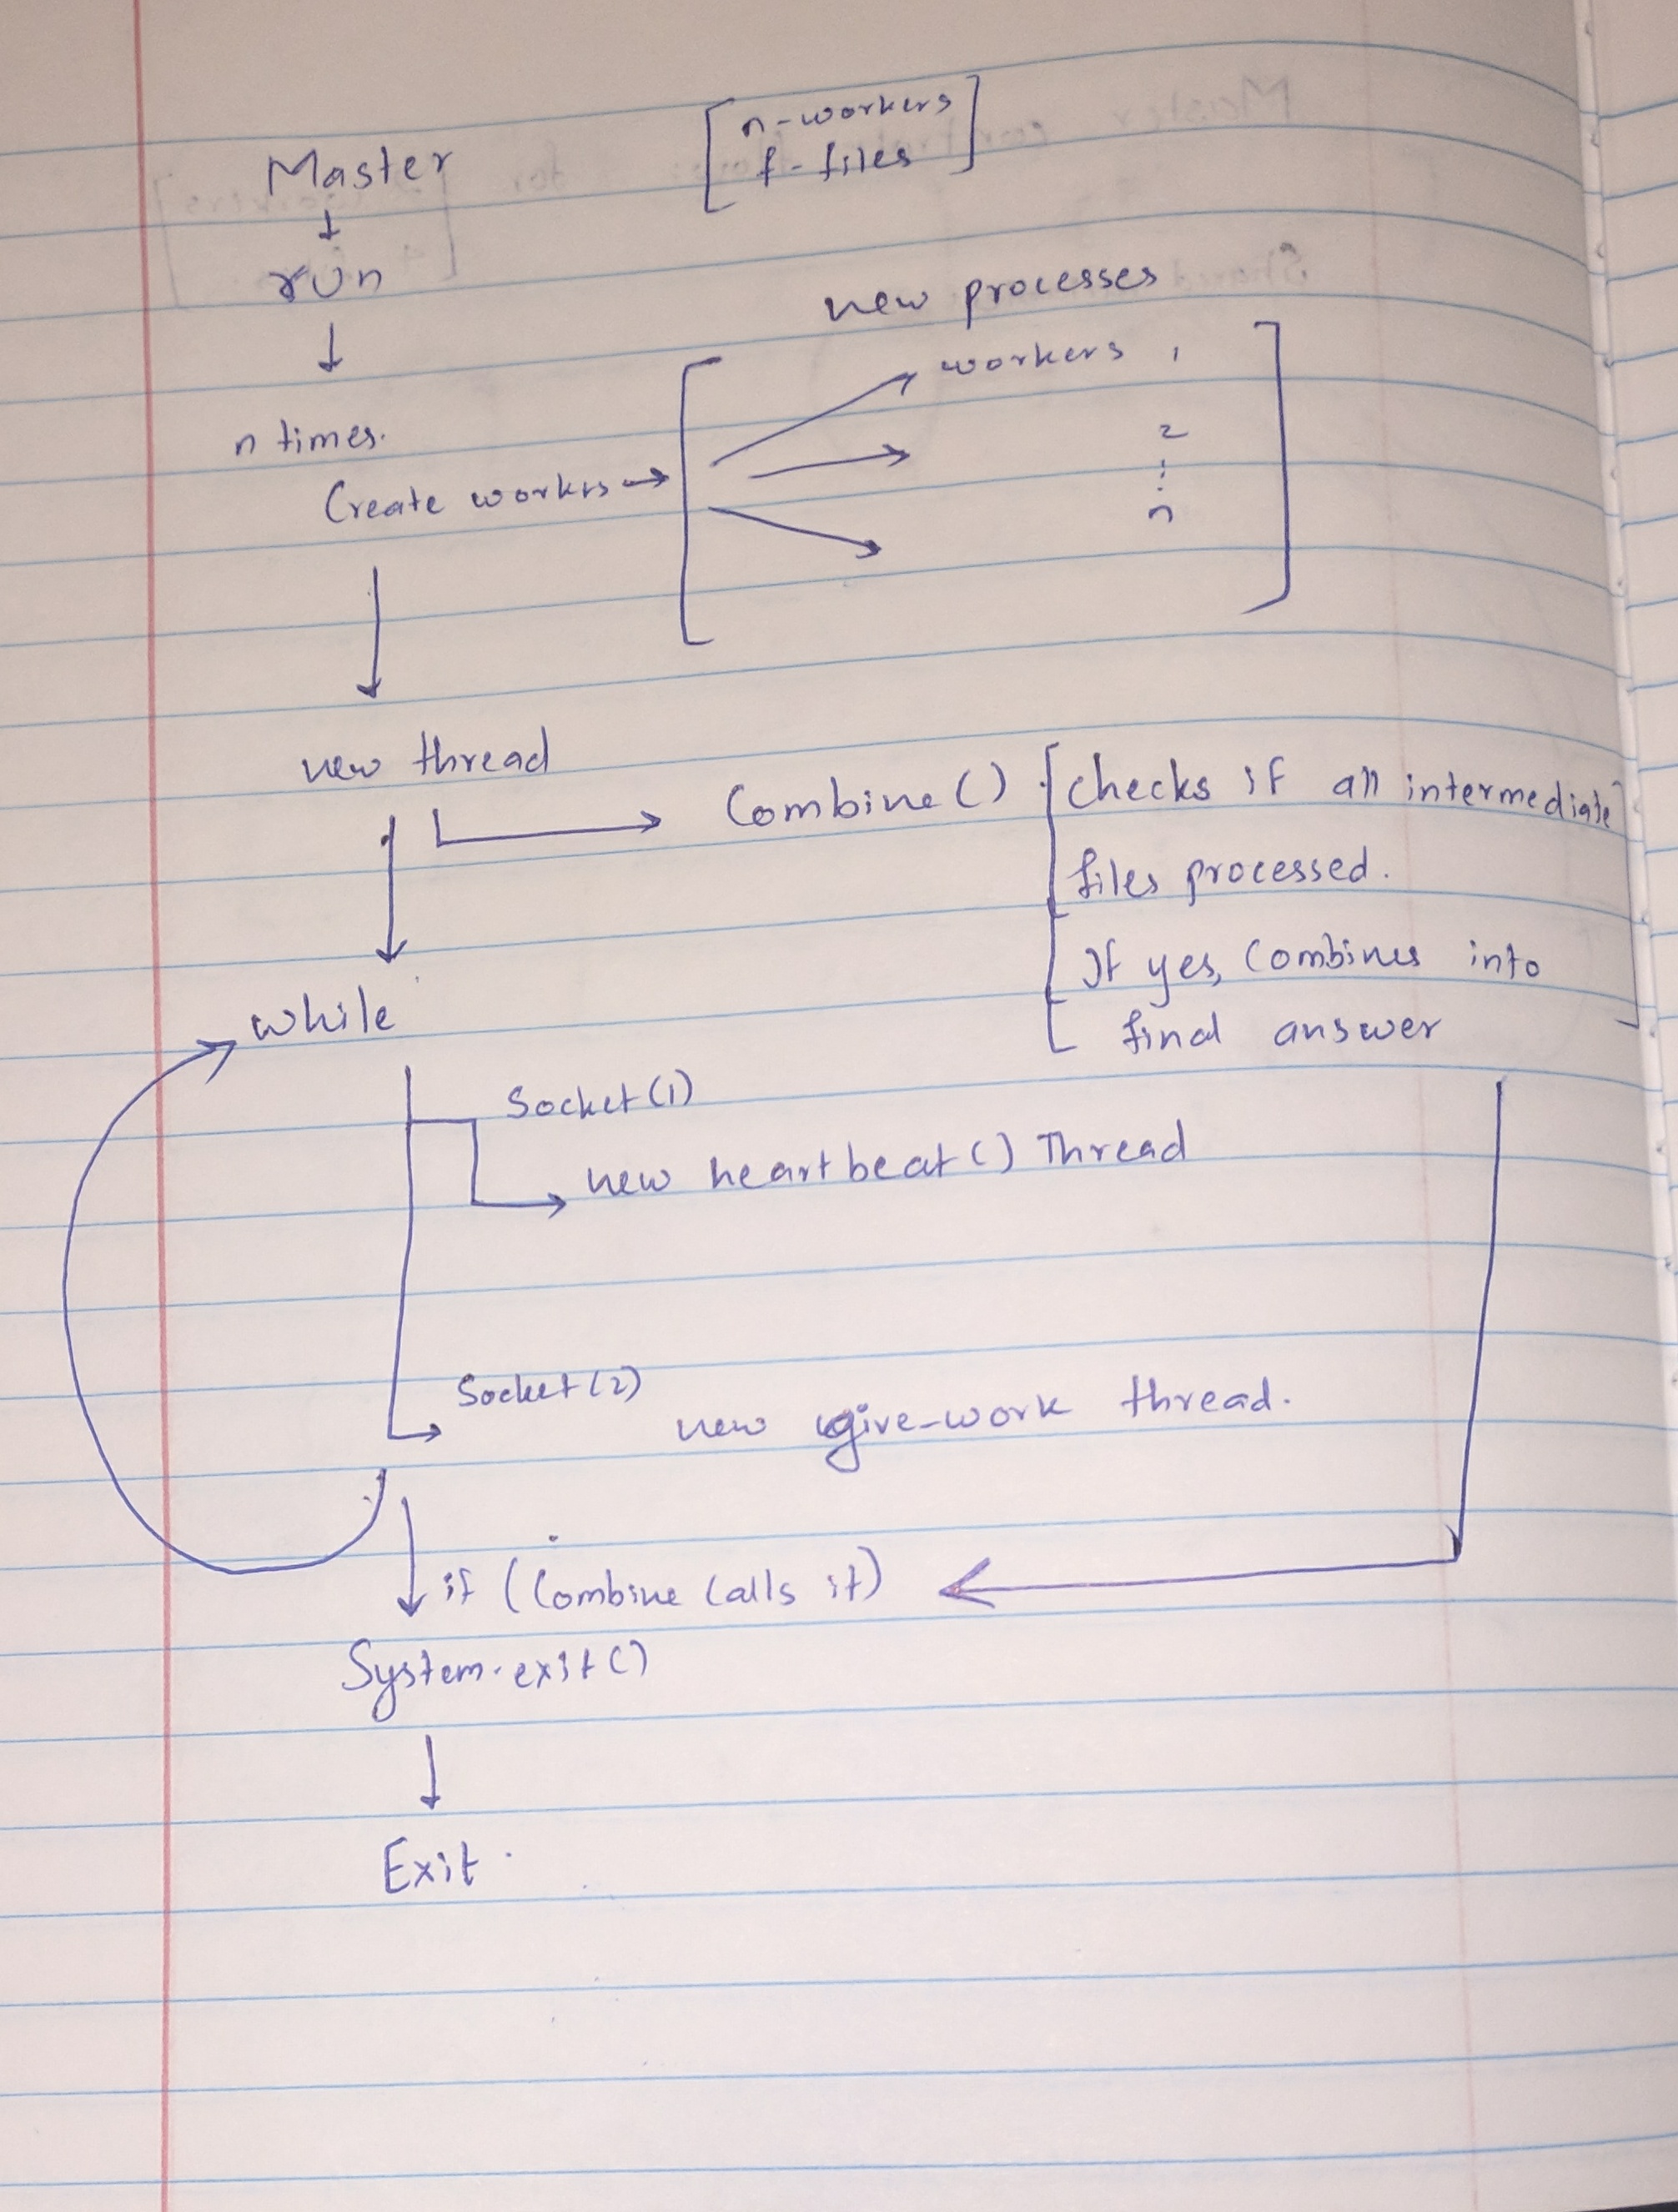 Master
[n-workers
f-files]
run
new processes
workers 1
2
n times.
Create workrs
n
new thread
Combine() [checks if all intermediate
files processed.
If yes, Combines into
final answer]
while
Socket(1)
new heartbeat() Thread
Socket(2)
new give-work thread.
if (Combine calls it)
System.exit()
Exit.